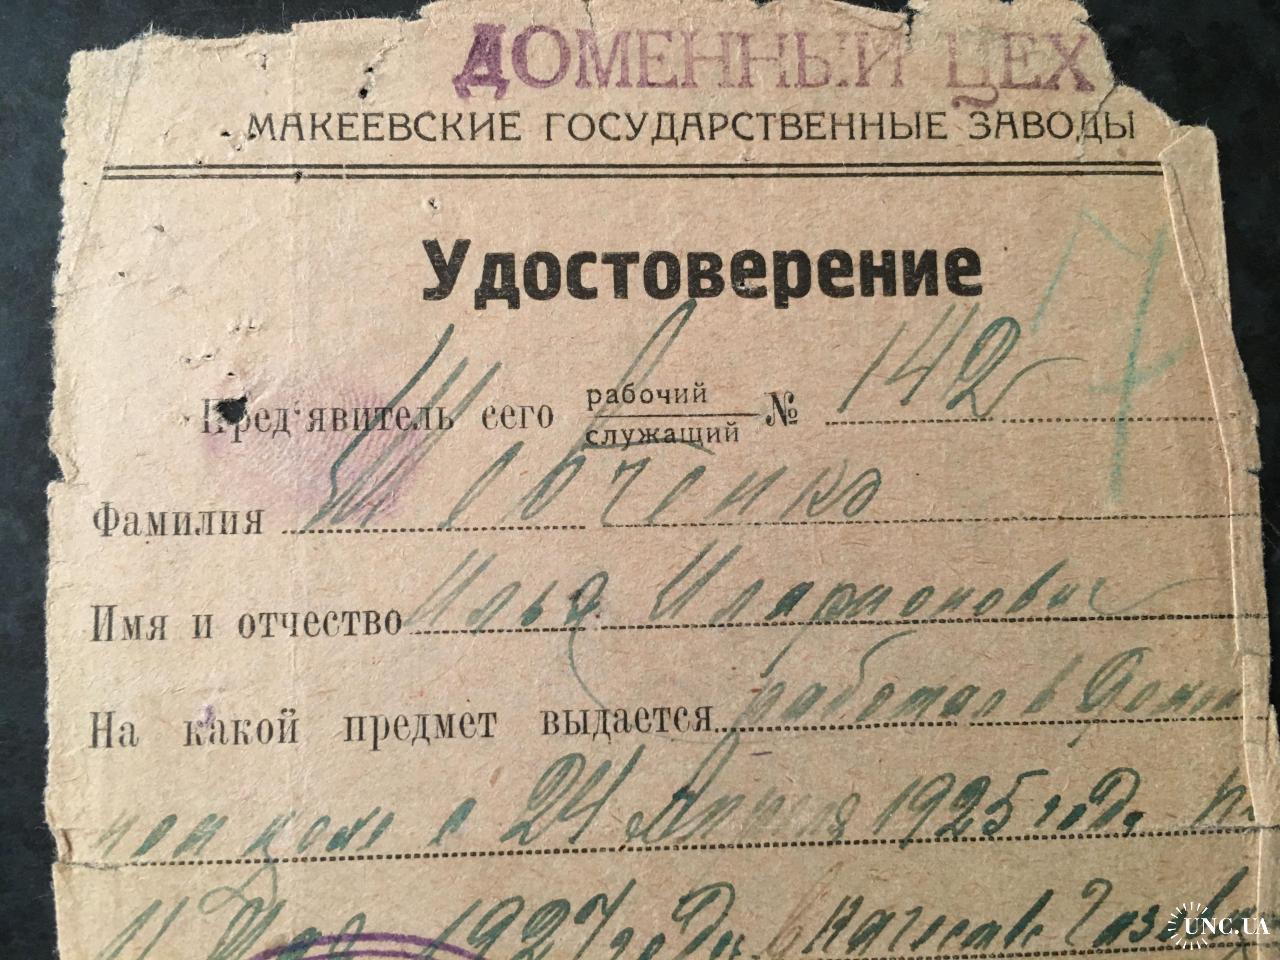 ДОМЕННЫЙ ЦЕХ
МАКЕЕВСКИЕ ГОСУДАРСТВЕННЫЕ ЗАВОДЫ
Удостоверение
7
Пред'явитель сего рабочий
служащий № 142
Фамилия Шевченко
Имя и отчество Илья Иларионович
На какой предмет выдается работал в Домен
ном цехе с 24 Апреля 1925 года по
11 Мая 1927 года
UNC.UA